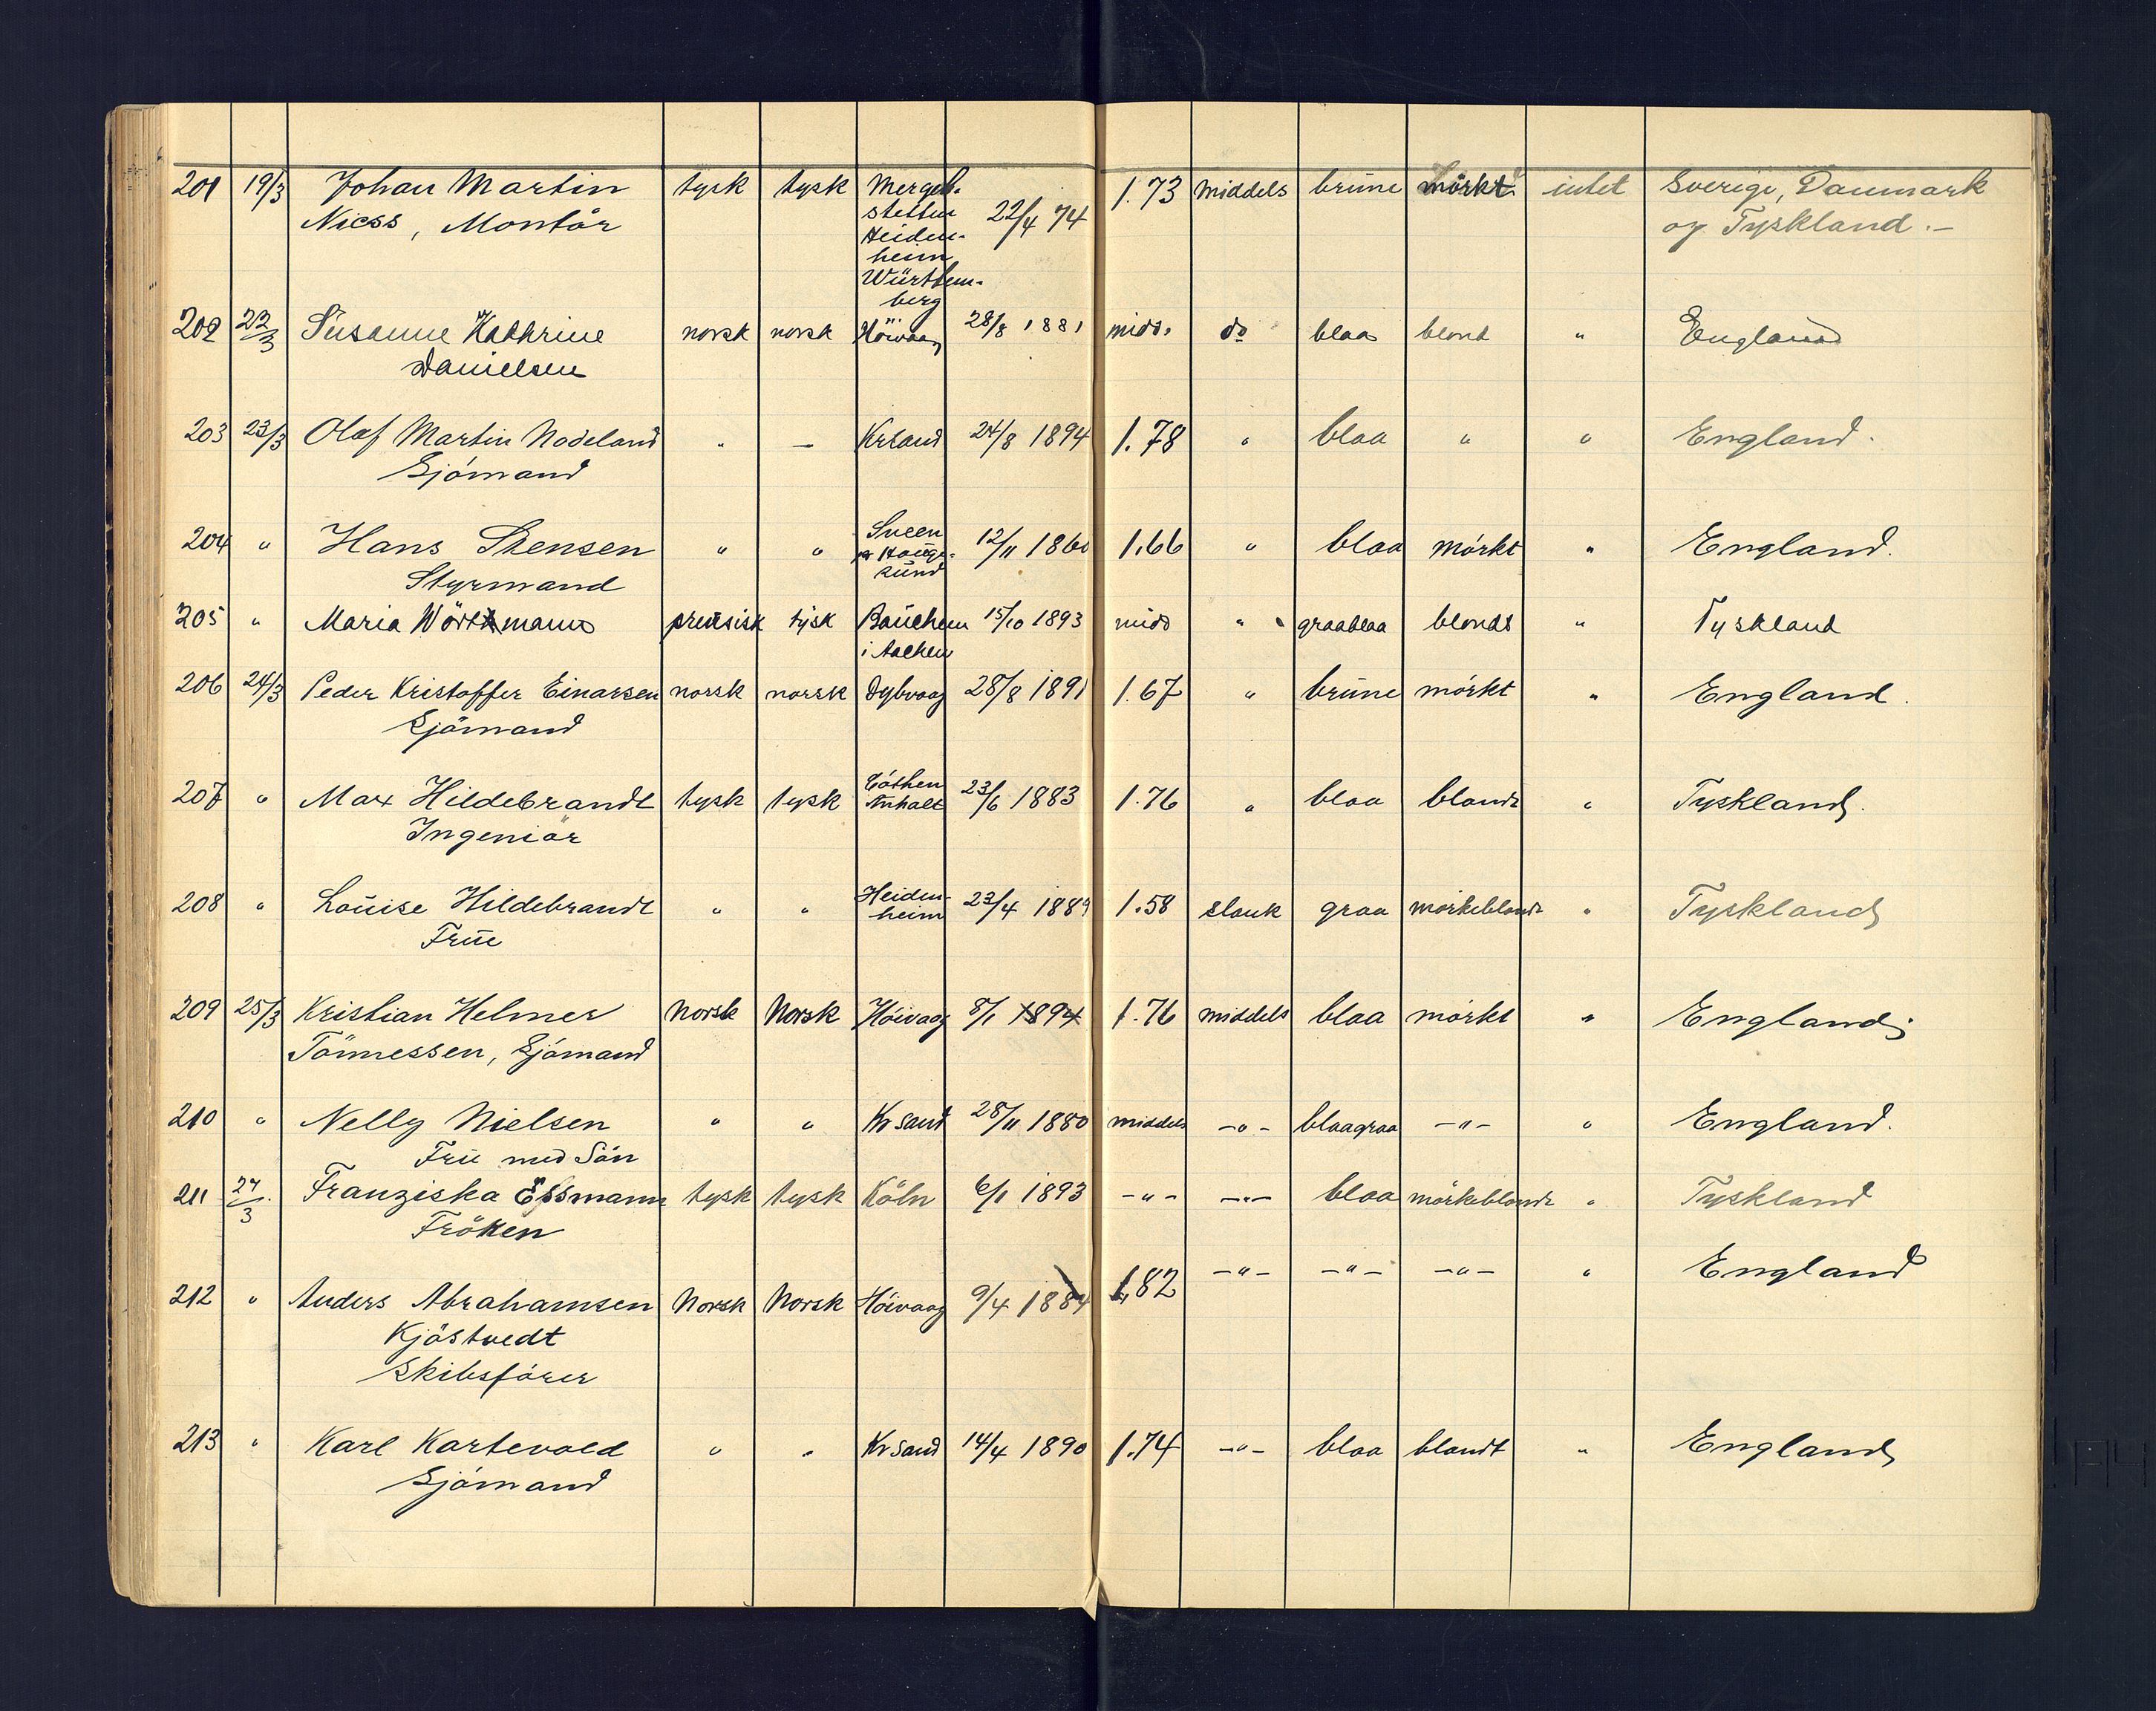 201 19/3 Johan Martin tysk tysk Mergel- 1.73 middels brune mørkt intet Sverige, Danmark
Niess, Montör stetten 22/4 74 og Tyskland.-
Heiden-
heim
Württem-
berg
202 22/3 Susanne Kathrine norsk norsk Höivaag 28/8 1881 midd. do blaa blond " England
Danielsen
203 23/3 Olaf Martin Nodeland " — Krsand 24/8 1894 1.78 " blaa " " England.
Sjömand
204 " Hans Stensen " " Sveen 12/11 1860 1.66 " blaa mörkt " England.
Styrmand pr Hauge-
sund
205 " Maria Wörthmann preusisk tysk Bauchem 15/10 1893 midd " graablaa blondt " Tyskland
i Aachen
206 24/3 Peder Kristoffer Einarsen norsk norsk Dybvaag 28/8 1891 1.67 " brune mörkt " England.
Sjömand
207 " Max Hildebrandt tysk tysk Cöthen 23/6 1883 1.76 " blaa blondt " Tyskland.
Ingeniör Anhalt
208 " Louise Hildebrandt " " Heiden- 23/4 1889 1.58 slank graa mörkeblondt " Tyskland
Frue heim
209 25/3 Kristian Helmer Norsk Norsk Höivaag 8/1 1894 1.76 middels blaa mörkt " England.
Tönnessen, Sjömand
210 " Nelly Nielsen " " Kr sand 28/11 1880 middels -"- blaagraa -"- " England.
Frue med Sön
211 24/3 Franziska Essmann tysk tysk Köln 6/1 1893 -"- -"- blaa mörkeblondt " Tyskland
Fröken
212 " Anders Abrahamsen Norsk Norsk Höivaag 9/4 1884 1.82 -"- -"- -"- " England
Kjöstvedt
Skibsförer
213 " Karl Kartevold " " Kr sand 14/4 1890 1.74 -"- blaa blondt " England
Sjömand